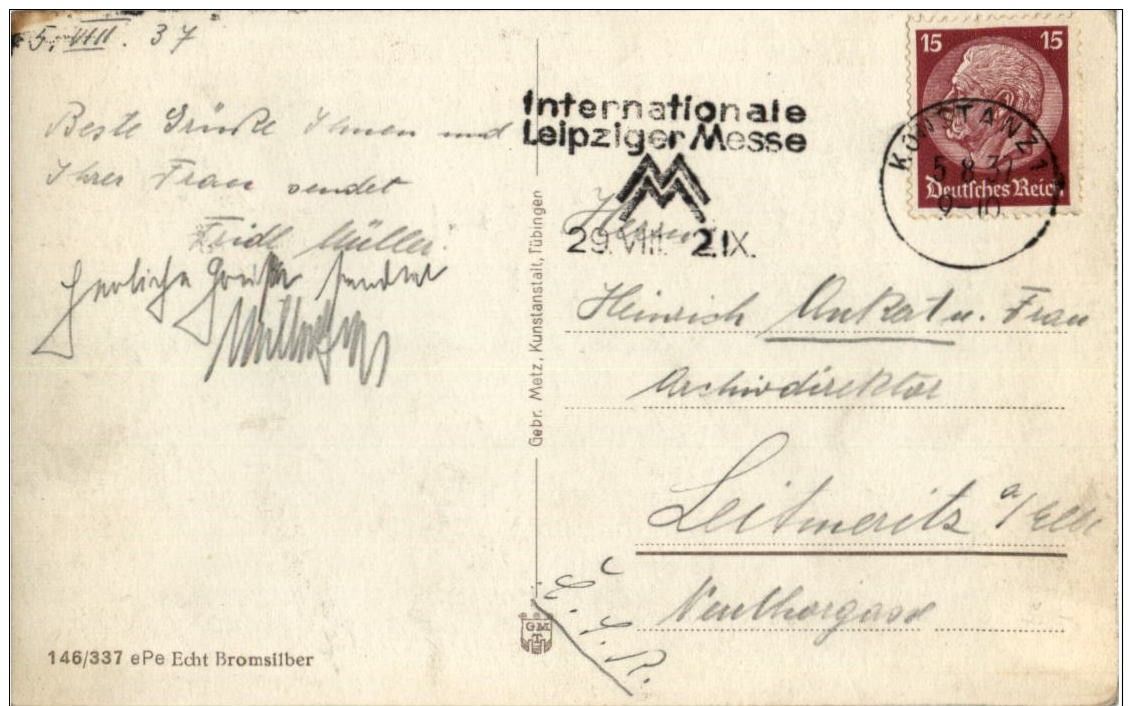 5. VIII. 37
Beste Grüße Ihnen und
Ihrer Frau sendet
Friedl Müller.
Herzliche Grüße sendet
Internationale
Leipziger Messe
29. VIII. 2. IX.
15 15
Deutsches Reich
KONSTANZ 1
5.8.37
9-10
Herrn
Heinrich Ankert u. Frau
Archivdirektor
Leitmeritz a/Elbe
Neuthorgasse
Č. S. R.
Gebr. Metz, Kunstanstalt, Tübingen
GMT
146/337 ePe Echt Bromsilber